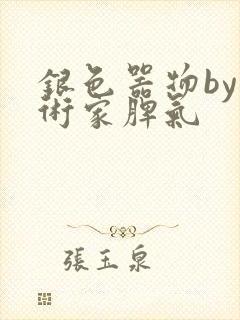 銀色器物by
術家脾氣
張玉泉